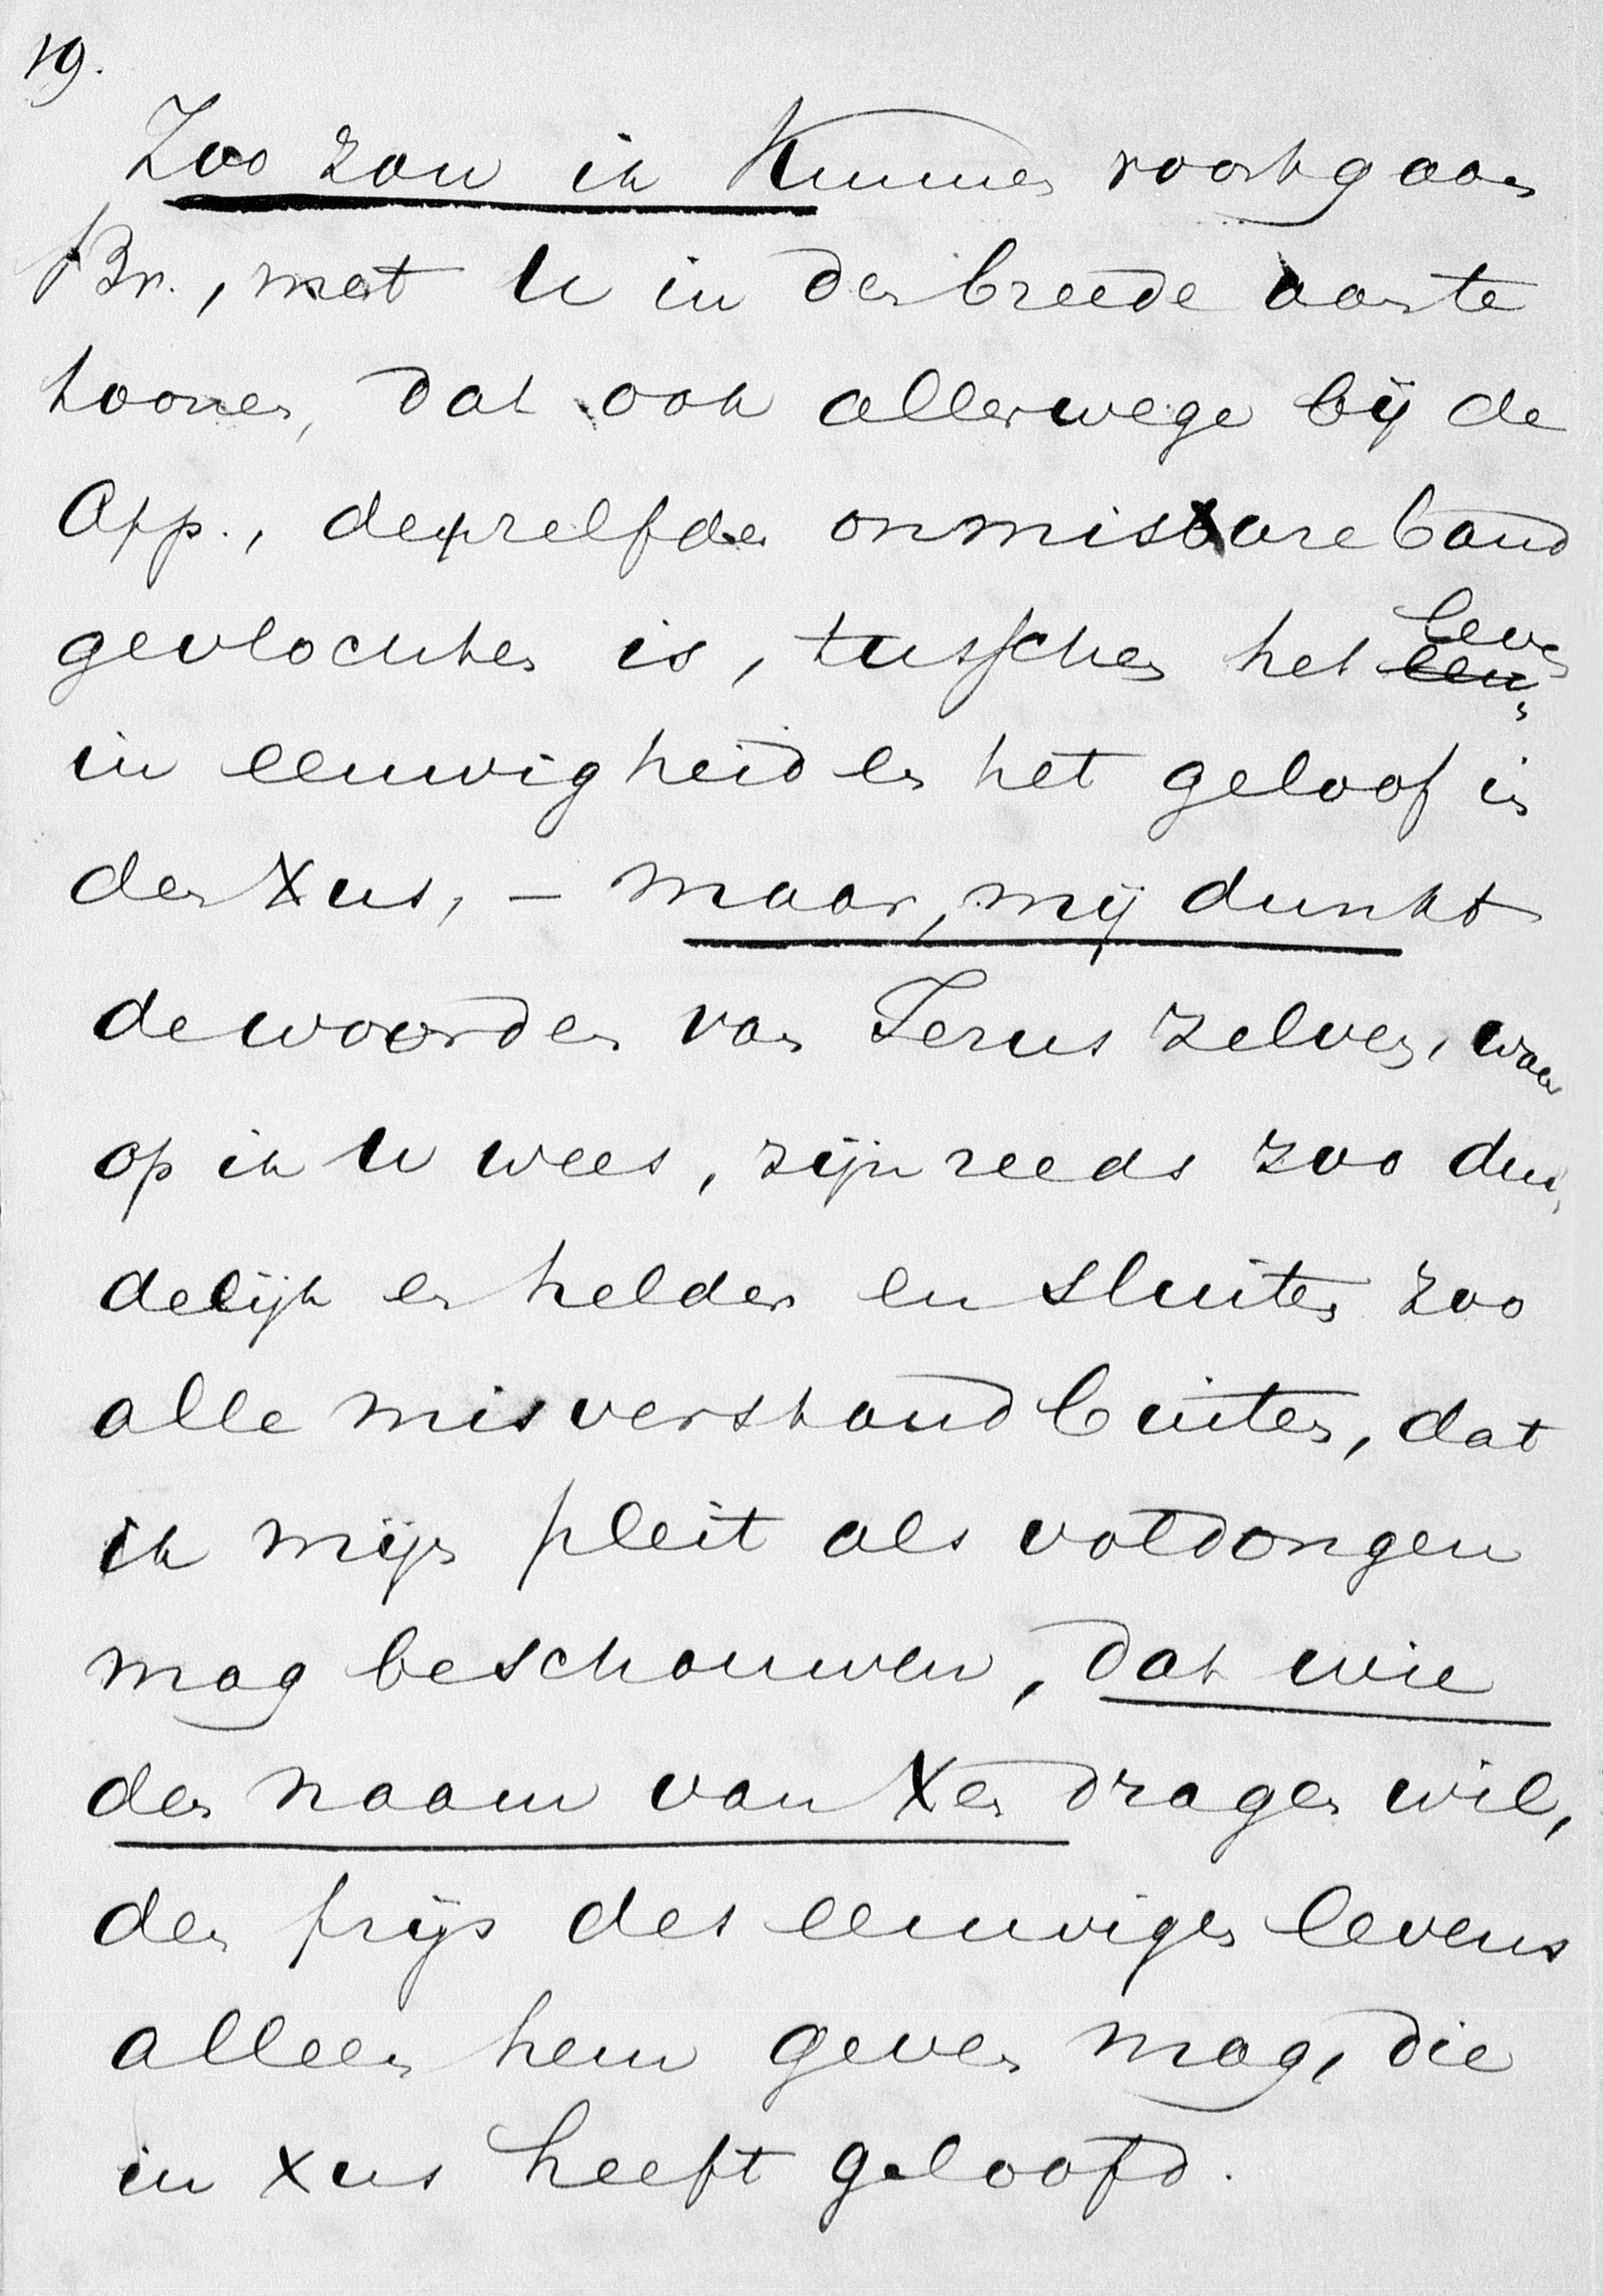 19.
Zoo zou ik kunnen voortgaan
Br., met U in den breede aan te
toonen, dat ook allerwege bij de
App., dezelfde onmisbare band
gevlochten is, tusschen het leven
in eeuwigheid en het geloof in
den Xus, – maar, mij dunkt
de woorden van Jezus zelven, waar
op ik U wees, zijn reeds zoo dui,
delijk en helder en sluiten zoo
alle misverstand buiten, dat
ik mijn pleit als voldongen
mag beschouwen, dat wie
den naam van Xen dragen wil,
den prijs des eeuwigen levens
alleen hem geven mag, die
in Xus heeft geloofd.